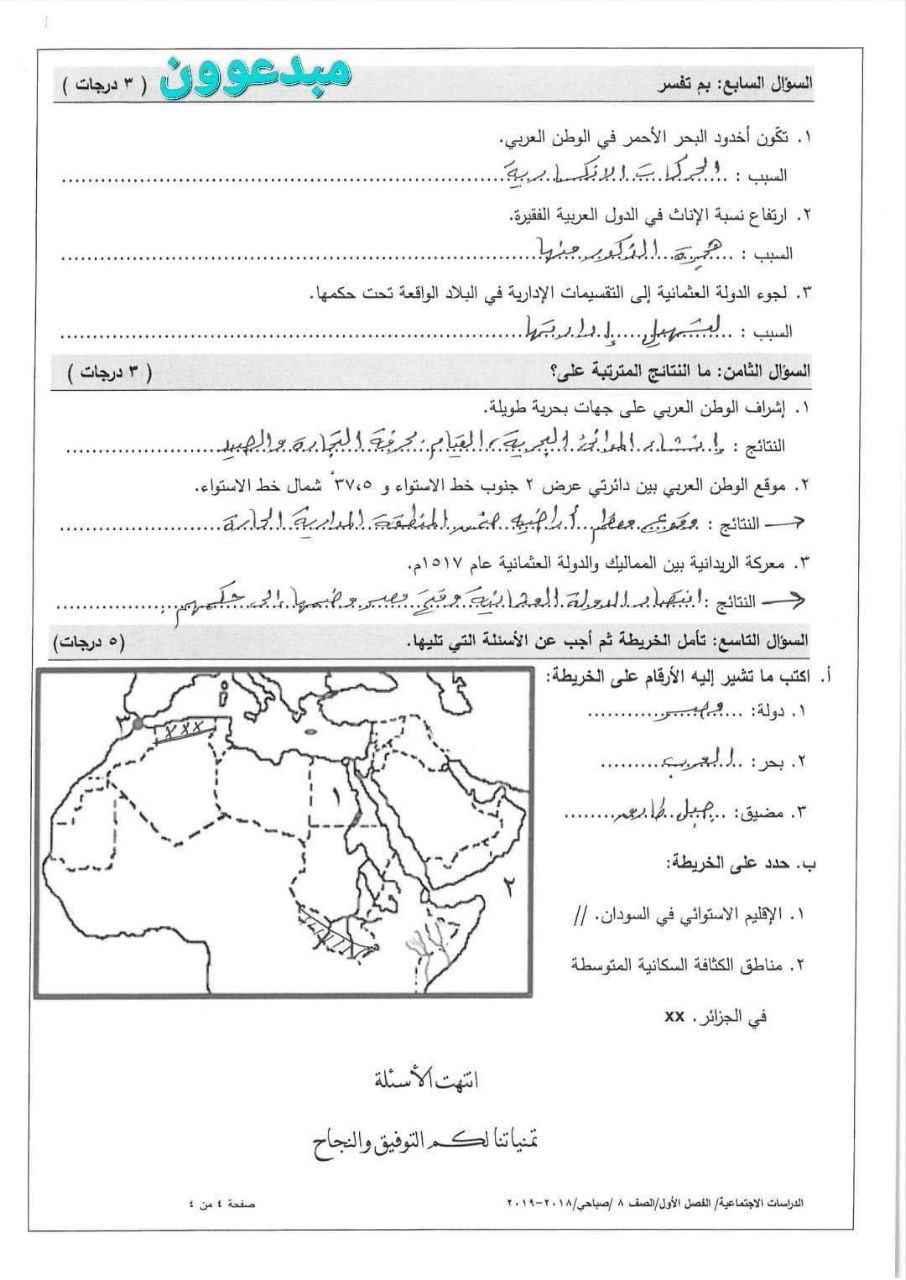 مبدعوون
السؤال السابع: بم تفسر ( ٣ درجات )
١. تكّون أخدود البحر الأحمر في الوطن العربي.
السبب : الحركات الانكسارية
٢. ارتفاع نسبة الإناث في الدول العربية الفقيرة.
السبب : هجرة الذكور منها
٣. لجوء الدولة العثمانية إلى التقسيمات الإدارية في البلاد الواقعة تحت حكمها.
السبب : لتسهيل إدارتها
السؤال الثامن: ما النتائج المترتبة على؟ ( ٣ درجات )
١. إشراف الوطن العربي على جهات بحرية طويلة.
النتائج : إنشاء الموانئ البحرية، القيام بحرفة التجارة والصيد
٢. موقع الوطن العربي بين دائرتي عرض ٢ جنوب خط الاستواء و ٣٧،٥° شمال خط الاستواء.
النتائج : وقوع معظم أراضيه ضمن المنطقة المدارية الحارة
٣. معركة الريدانية بين المماليك والدولة العثمانية عام ١٥١٧م.
النتائج : انتصار الدولة العثمانية وفتح مصر وضمها إلى حكمهم.
السؤال التاسع: تأمل الخريطة ثم أجب عن الأسئلة التي تليها. (٥ درجات)
أ. اكتب ما تشير إليه الأرقام على الخريطة:
١. دولة: مصر
٢. بحر: العرب
٣. مضيق: جبل طارق
ب. حدد على الخريطة:
١. الإقليم الاستوائي في السودان. //
٢. مناطق الكثافة السكانية المتوسطة
في الجزائر. xx
٣
xxx
١
٢
انتهت الأسئلة
تمنياتنا لكم التوفيق والنجاح
الدراسات الاجتماعية/ الفصل الأول/الصف ٨ /صباحي/٢٠١٨-٢٠١٩ صفحة ٤ من ٤